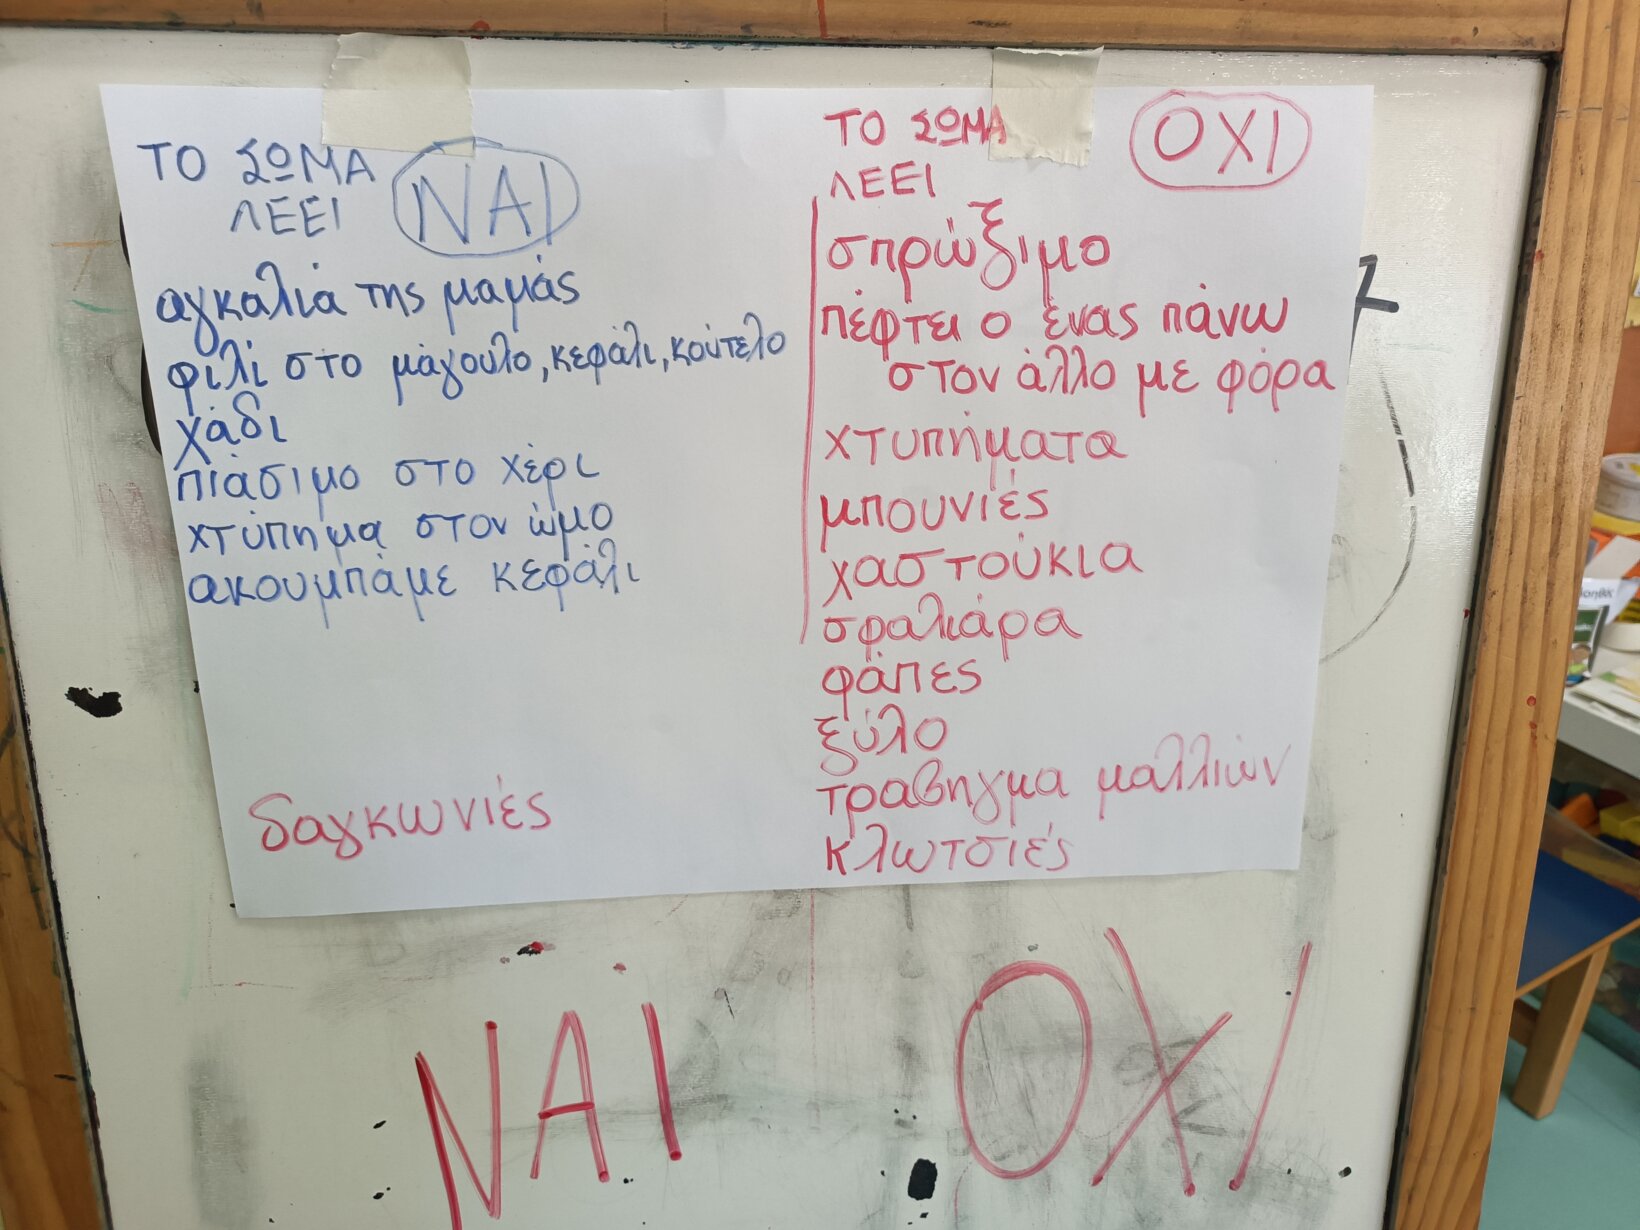 ΤΟ ΣΩΜΑ
ΛΕΕΙ ΝΑΙ
αγκαλιά της μαμάς
φιλί στο μάγουλο, κεφάλι, κούτελο
χάδι
πιάσιμο στο χέρι
χτύπημα στον ώμο
ακουμπάμε κεφάλι
δαγκωνιές
ΤΟ ΣΩΜΑ ΟΧΙ
ΛΕΕΙ
σπρώξιμο
πέφτει ο ένας πάνω
στον άλλο με φόρα
χτυπήματα
μπουνιές
χαστούκια
σφαλιάρα
φάπες
ξύλο
τράβηγμα μαλλιών
κλωτσιές
ΝΑΙ ΟΧΙ